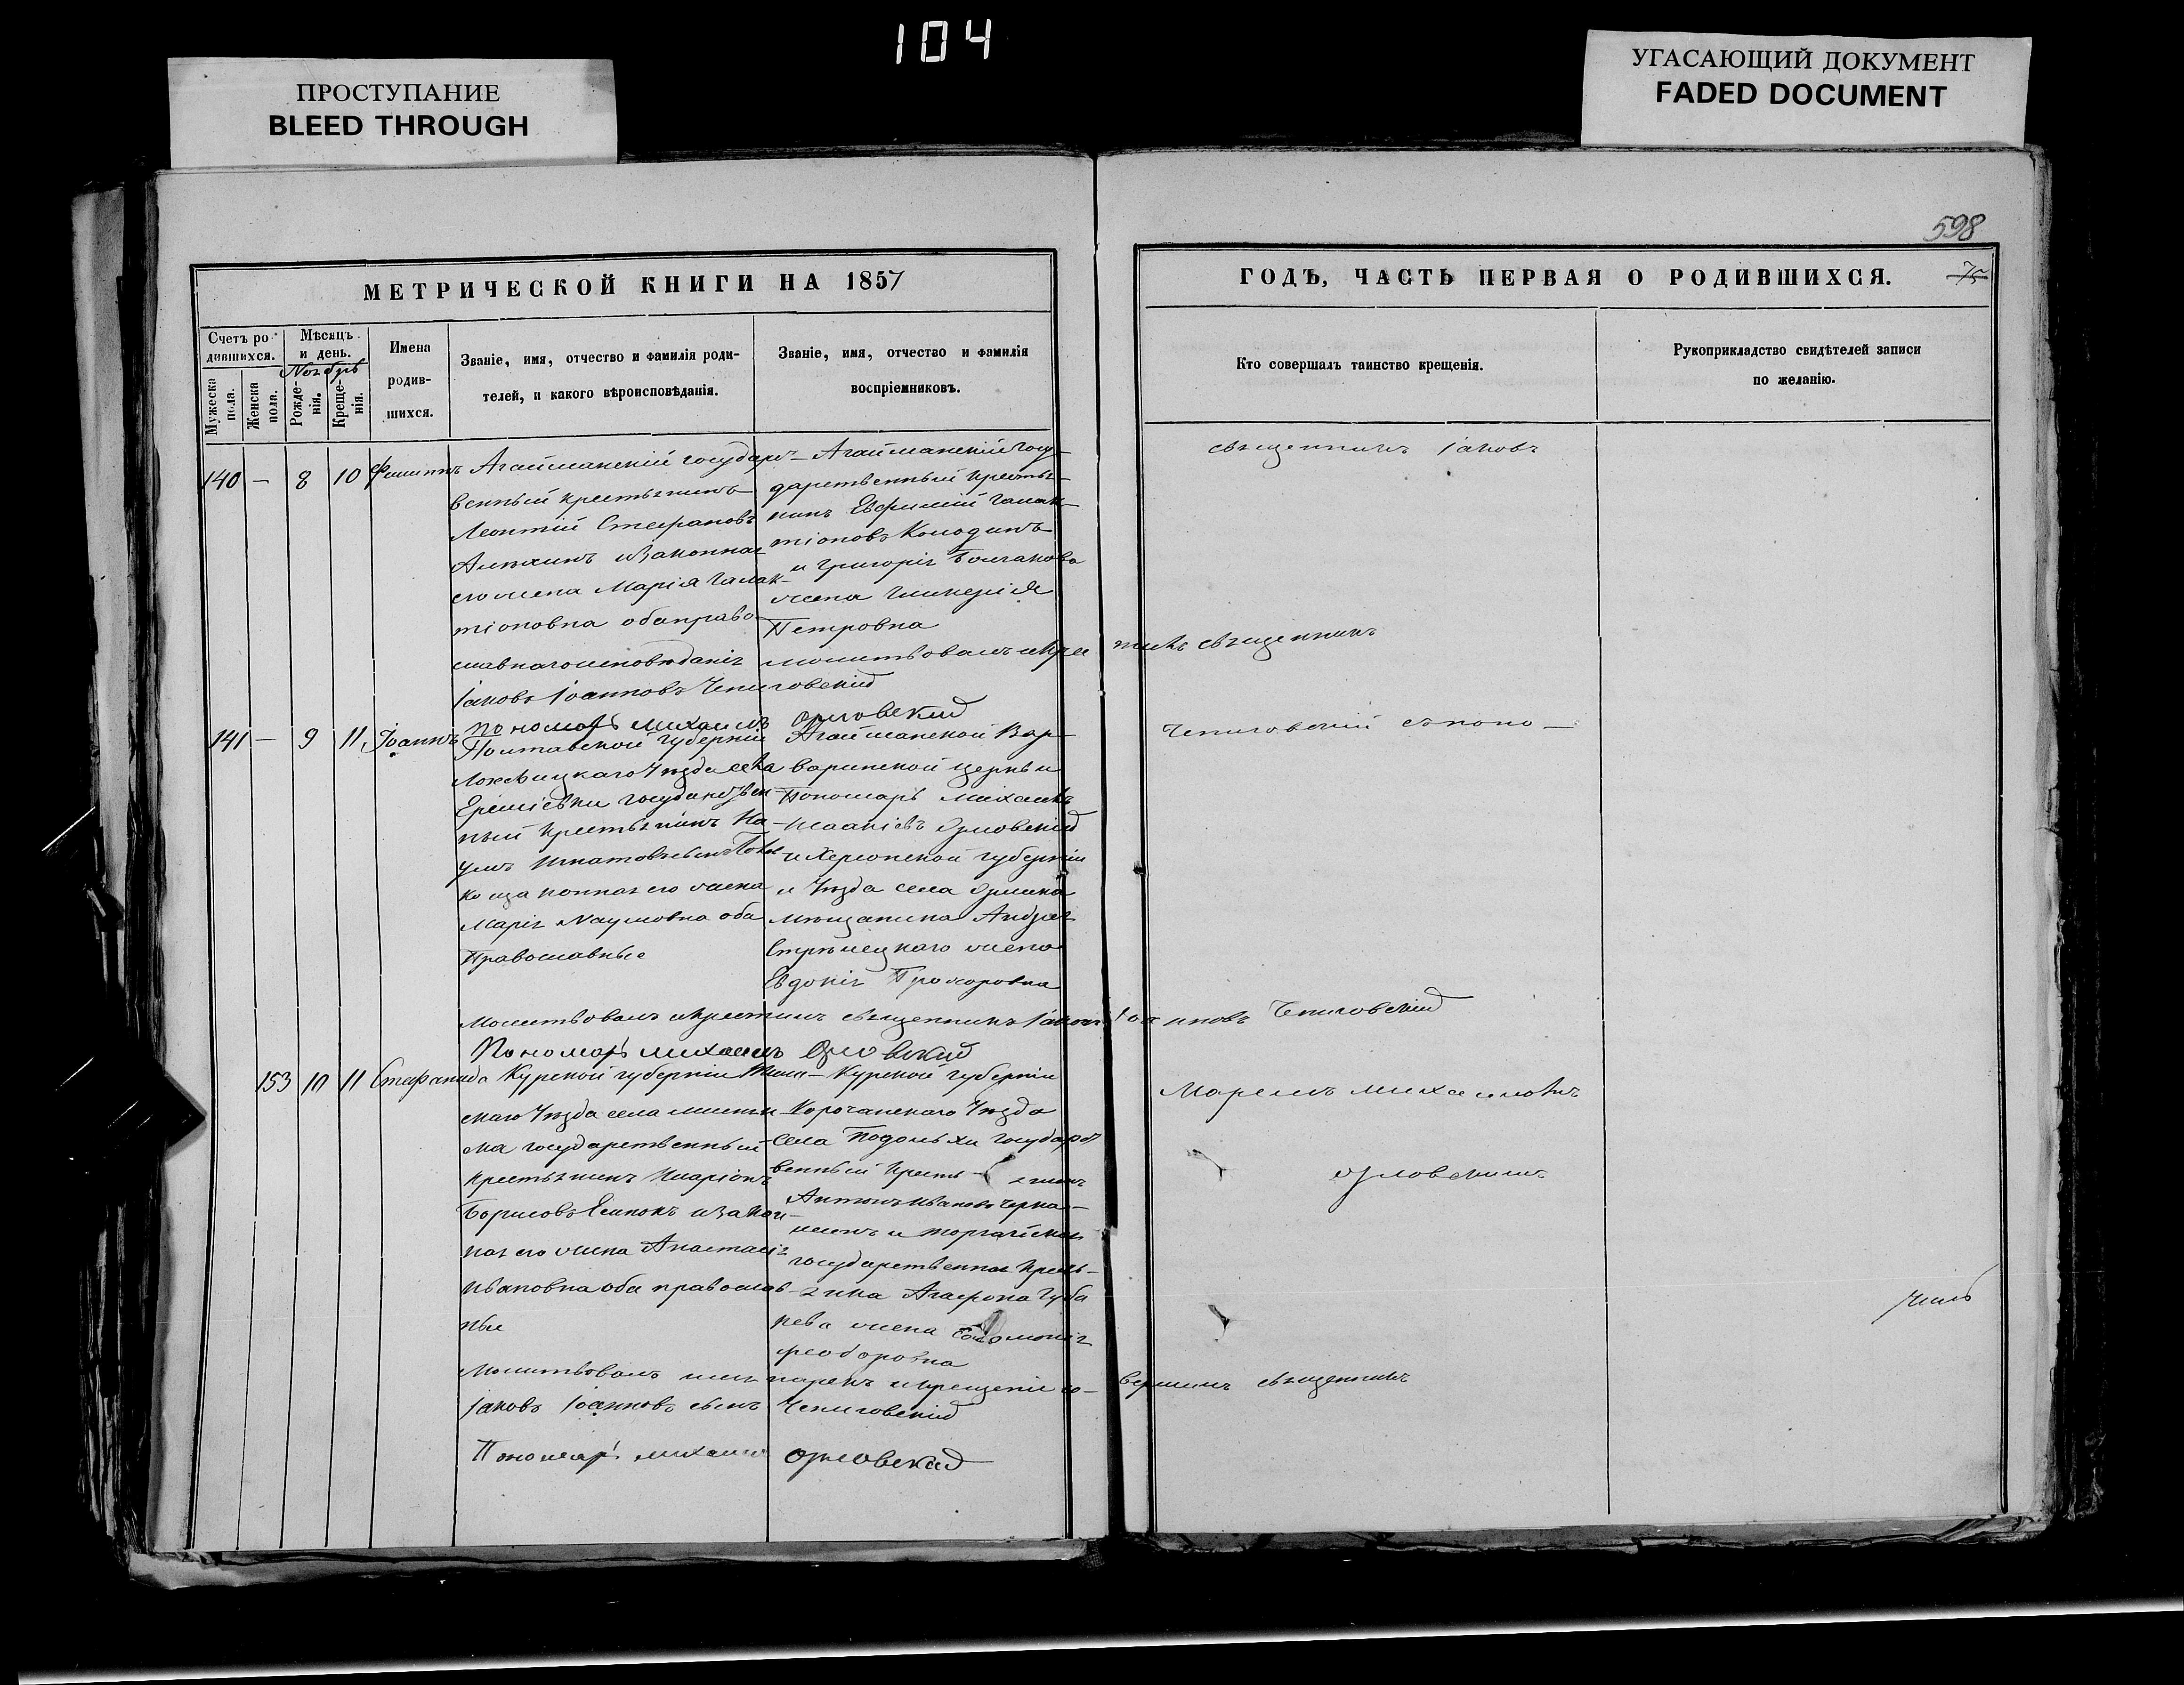 104
ПРОСТУПАНИЕ
BLEED THROUGH
УГАСАЮЩИЙ ДОКУМЕНТ
FADED DOCUMENT
598
75
МЕТРИЧЕСКОЙ КНИГИ НА 1857
ГОДЪ, ЧАСТЬ ПЕРВАЯ О РОДИВШИХСЯ.
Счетъ родившихся.
Мужеска пола.
Женска пола.
Мѣсяцъ и день.
Ноябрь
Рожденія.
Крещенія.
Имена родившихся.
Званіе, имя, отчество и фамилія родителей, и какого вѣроисповѣданія.
Званіе, имя, отчество и фамилія воспріемниковъ.
Кто совершалъ таинство крещенія.
Рукоприкладство свидѣтелей записи по желанію.
140 — 8 10 Филиппъ
Агайманскій государст-
венный крестьянинъ
Леонтій Стефановъ
изаконная
его жена Марія Галак-
тіоновна оба право-
славнаго исповѣданія
Агайманскій госу-
дарственный крестья-
нинъ Евфимій Галак-
тіоновъ Колодинъ
и Григорія
жена Гликерія
Петровна
священникъ Іаковъ
молитвовалъ икрестилъ священникъ
Іаковъ Іоанновъ Чепиговскій
Пономарь Михаилъ Орловскій
141 — 9 11 Іоаннъ
Полтавской губерніи
уѣзда села
Ереміевки государствен-
ный крестьянинъ На-
умъ Игнатовъ сынъ
законная его жена
Марія Наумовна оба
Православные
Агайманской Вар-
варинской церкви
Пономарь Михаилъ
Орловскій
и Херсонской губерніи
и Уѣзда села
мѣщанина Андрея
Стрѣлецкаго жена
Евдокія Прохоровна
Чепиговскій съ поно-
Молитвовалъ икрестилъ священникъ Іаковъ Іоанновъ Чепиговскій
Пономарь Михаилъ Орловскій
153 10 11 Стефанида
Курской губерніи
скаго Уѣзда села
государственный
крестьянинъ Иларіонъ
Борисовъ изакон-
ная его жена Анастасія
Ивановна оба православ-
ные
Курской губерніи
Корочанскаго Уѣзда
села Подольхи государст
венный крестьянинъ
Антонъ Ивановъ
и
государственнаго кресть-
янина Агафона Губа
рева жена
Феодоровна
маремъ Михаиломъ
Орловскимъ
Молитвовалъ имя нарекъ икрещеніе со-вершилъ священникъ
Іаковъ Іоанновъ сынъ Чепиговскій
Пономарь Михаилъ Орловскій